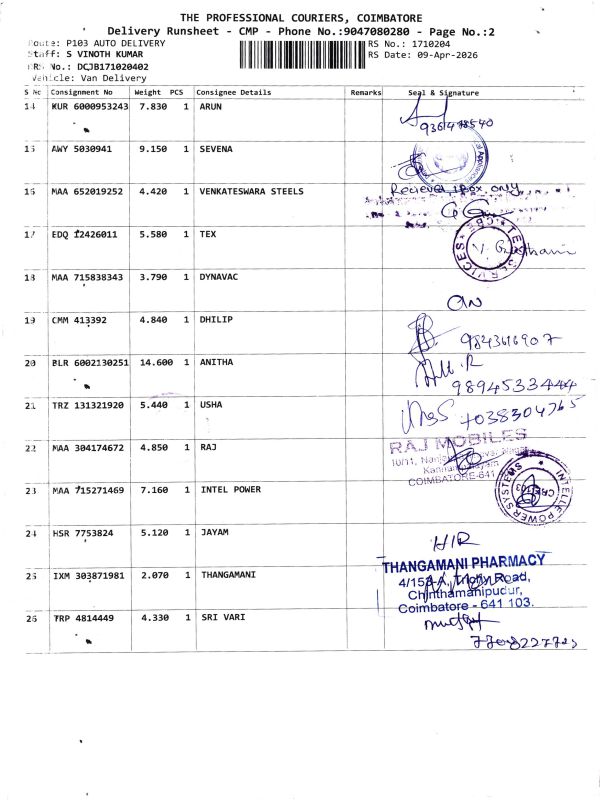 THE PROFESSIONAL COURIERS, COIMBATORE
Delivery Runsheet - CMP - Phone No.:9047080280 - Page No.:2
Route: P103 AUTO DELIVERY
RS No.: 1710204
Staff: S VINOTH KUMAR
RS Date: 09-Apr-2026
DRS No.: DCJB171020402
Vehicle: Van Delivery
S No Consignment No Weight PCS Consignee Details Remarks Seal & Signature
14 KUR 6000953243 7.830 1 ARUN
15 AWY 5030941 9.150 1 SEVENA
16 MAA 652019252 4.420 1 VENKATESWARA STEELS
Recieved 1 Box only
17 EDQ 12426011 5.580 1 TEX
SERVICES
18 MAA 715838343 3.790 1 DYNAVAC
19 CMM 413392 4.840 1 DHILIP
9843616907
20 BLR 6002130251 14.600 1 ANITHA
9894533444
21 TRZ 131321920 5.440 1 USHA
22 MAA 304174672 4.850 1 RAJ
RAJ MOBILES
COIMBATORE-641
23 MAA 715271469 7.160 1 INTEL POWER
INTELLE POWER SYSTEMS
24 HSR 7753824 5.120 1 JAYAM
25 IXM 303871981 2.070 1 THANGAMANI
THANGAMANI PHARMACY
4/15 Road,
Chinthamanipudur,
Coimbatore - 641 103.
26 TRP 4814449 4.330 1 SRI VARI